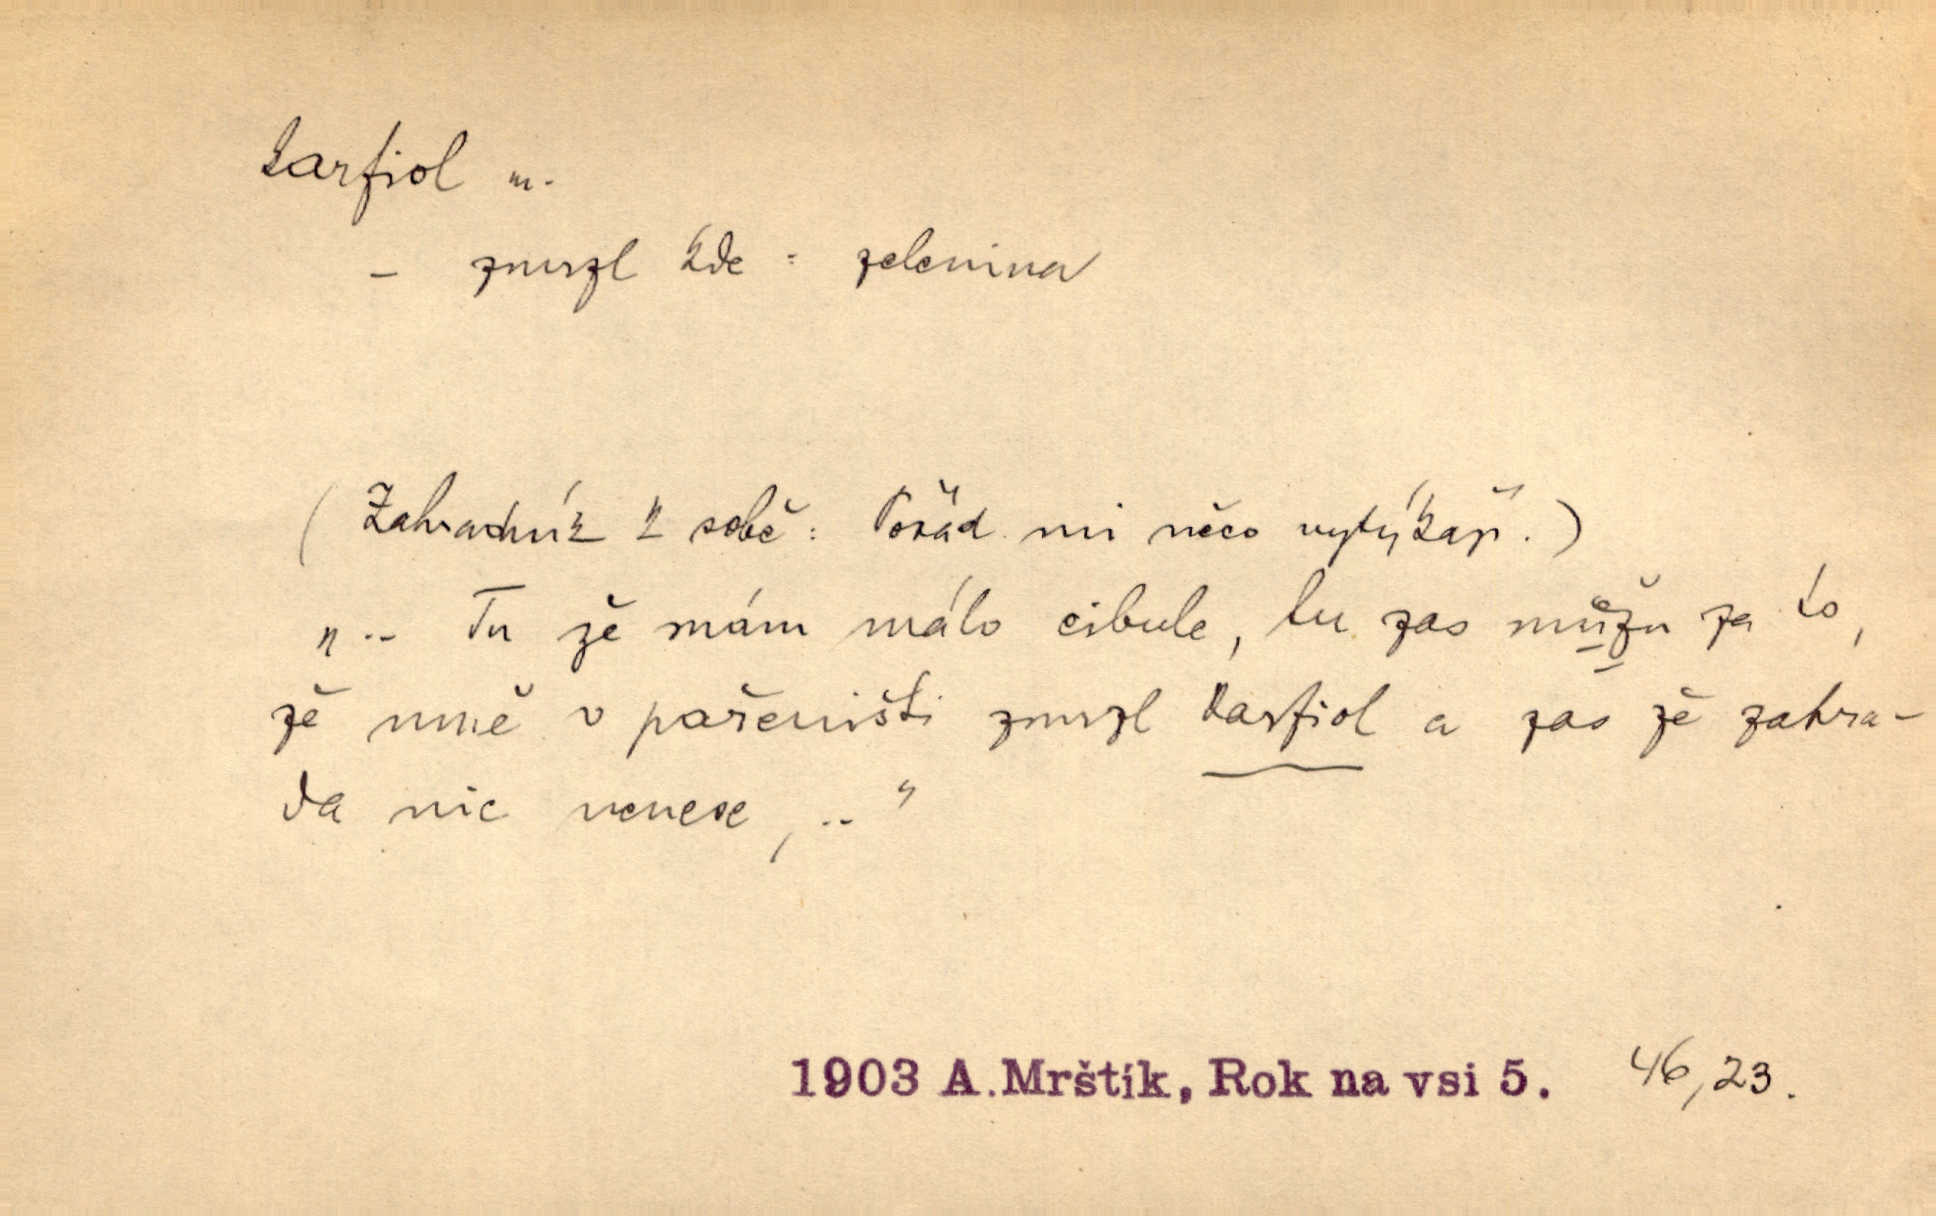 karfiol m.
– zmrzl kde : zelenina
(Zahradník k sobě: Pořád mi něco vytýkají.)
„.. Tu že mám málo cibule, tu zas můžu za to,
že mně v pařeništi zmrzl karfiol a zas že zahra-
da nic nenese, .."
1903 A.Mrštík, Rok na vsi 5. 46,23.